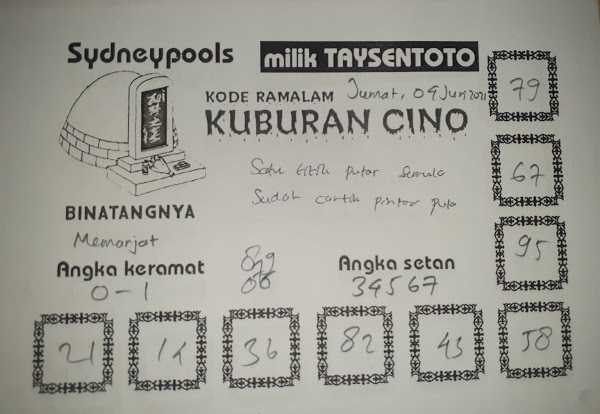 Sydneypools
milik TAYSENTOTO
79
KODE RAMALAM Jumat, 04 Jun 2021
KUBURAN CINO
Satu titik putar semula
Sudah cantik pintar pula
67
BINATANGNYA
Memanjat
95
Angka keramat
Angka setan
0-1
34567
21
14
36
82
43
58